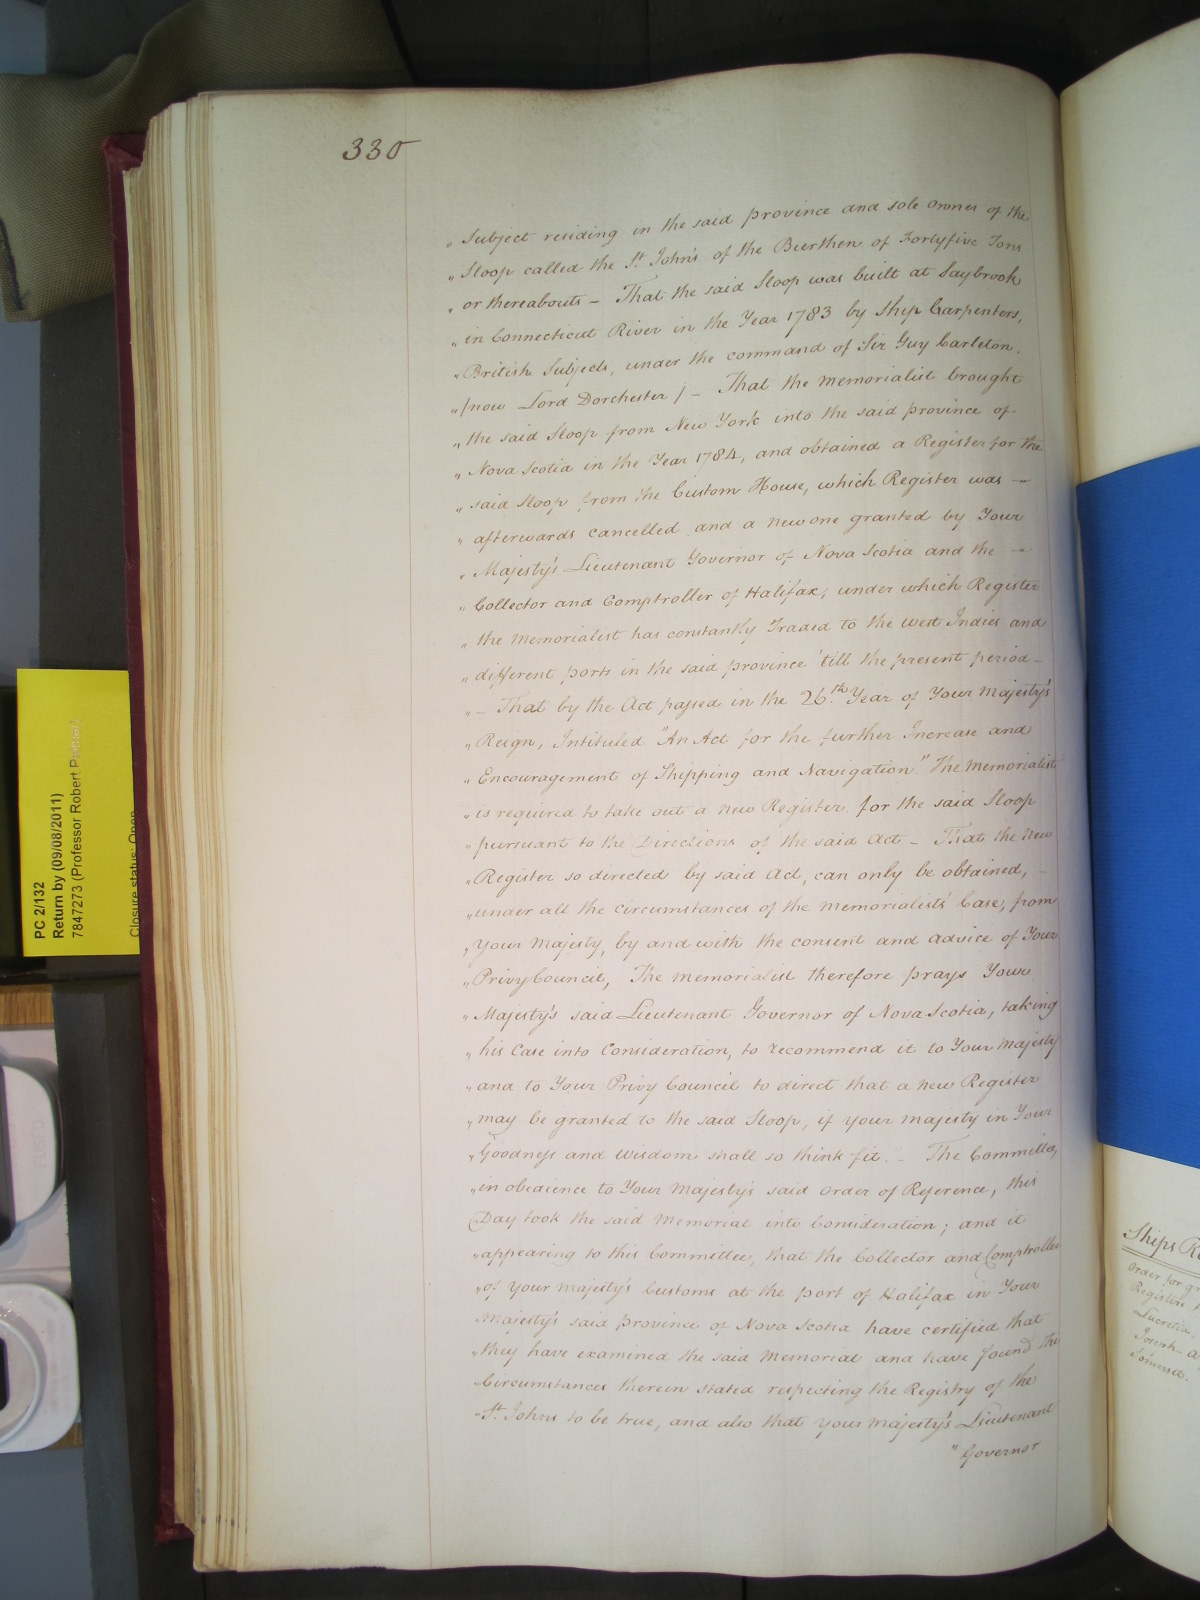 330
„ Subject residing in the said province and sole Owner of the
„ Sloop called the St. John's of the Burthen of Fortyfive Tons
„ or thereabouts – That the said Sloop was built at Saybrook
„ in Connecticut River in the Year 1783 by Ship Carpenters,
„ British Subjects, under the command of Sir Guy Carleton.
„ (now Lord Dorchester) – That the memorialist brought
„ the said Sloop from New York into the said province of
„ Nova Scotia in the Year 1784, and obtained a Register for the
„ said Sloop from the Custom House, which Register was –
„ afterwards cancelled and a new one granted by Your
„ Majesty's Lieutenant Governor of Nova Scotia and the –
„ Collector and Comptroller of Halifax; under which Register
„ the Memorialist has constantly Traded to the west Indies and
„ different ports in the said province 'till the present period –
„ – That by the Act passed in the 26.th Year of Your Majesty's
„ Reign, Intituled "An Act for the further Increase and
„ Encouragement of Shipping and Navigation" The Memorialist
„ is required to take out a new Register for the said Sloop
„ pursuant to the Directions of the said Act – That the New
„ Register so directed by said Act, can only be obtained, –
„ under all the circumstances of the memorialists' Case, from
„ Your Majesty, by and with the consent and advice of Your
„ Privy Council, The Memorialist therefore prays Your
„ Majesty's said Lieutenant Governor of Nova Scotia, taking
„ his Case into Consideration, to recommend it to Your Majesty
„ and to Your Privy Council to direct that a new Register
„ may be granted to the said Sloop, if your Majesty in Your
„ Goodness and Wisdom shall so think fit. – The Committee,
„ in obedience to Your Majesty's said Order of Reference, this
Day took the said Memorial into Consideration; and it
„ appearing to this Committee, that the Collector and Comptroller
„ of Your Majesty's Customs at the port of Halifax in Your
Majesty's said province of Nova Scotia have certified that
„ they have examined the said Memorial and have found the
„ Circumstances therein stated respecting the Registry of the
„ St. Johns to be true, and also that your Majesty's Lieutenant
„ Governor
PC 2/132
Return by (09/08/2011)
7847273 (Professor Robert
Closure status: Open
Ships
Order for
Register
Lucretia,
Joseph
Somerset.